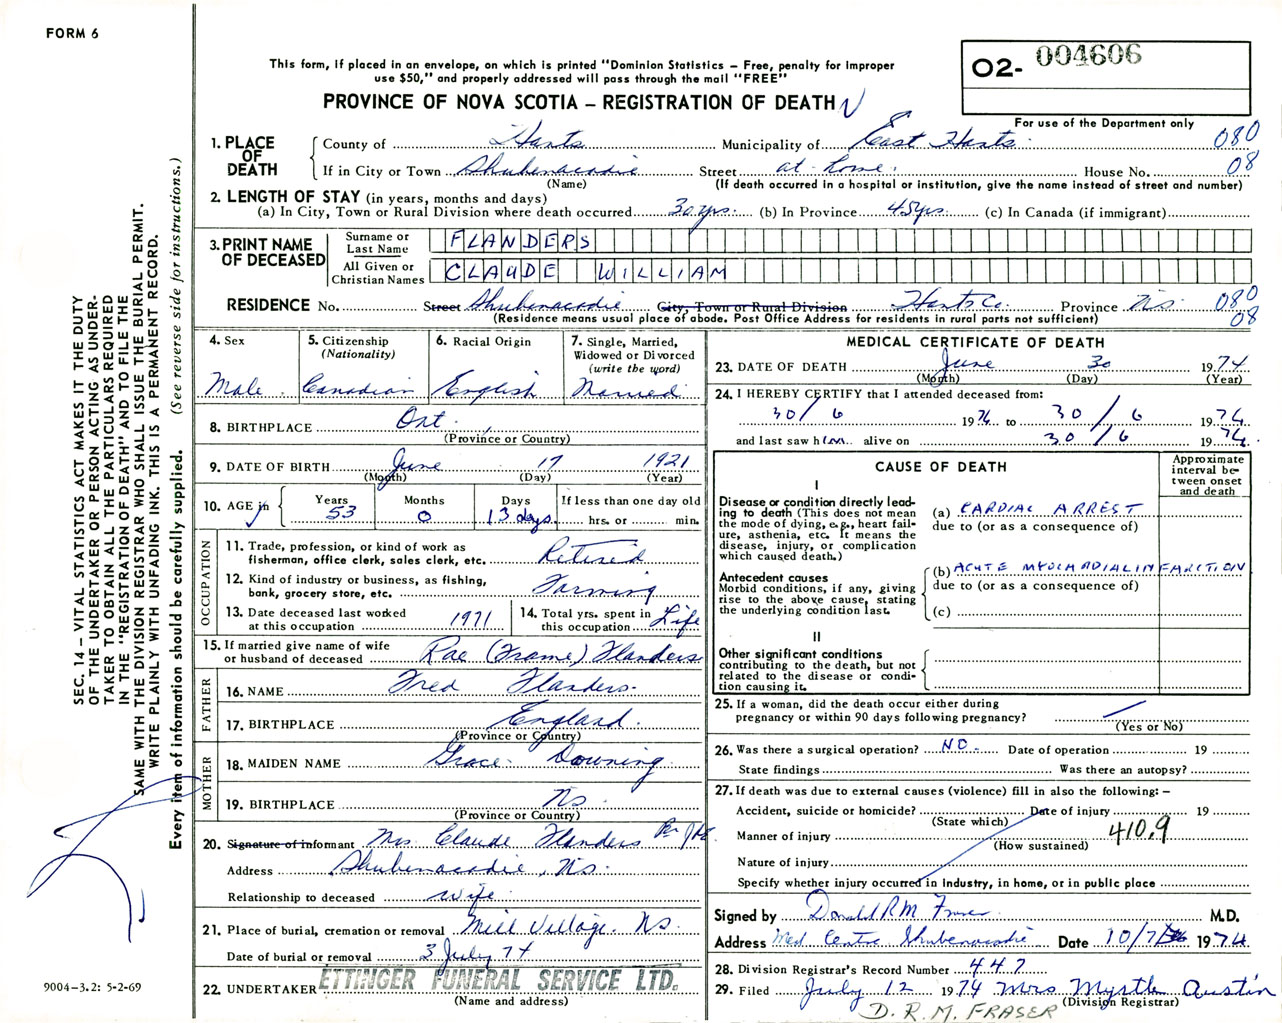 FORM 6
This form, if placed in an envelope, on which is printed "Dominion Statistics – Free, penalty for improper
use $50," and properly addressed will pass through the mail "FREE"
PROVINCE OF NOVA SCOTIA – REGISTRATION OF DEATH
02- 004606
For use of the Department only
1. PLACE OF DEATH
County of Hants Municipality of East Hants 080
If in City or Town Shubenacadie Street at home. House No. 08
(Name) (If death occurred in a hospital or institution, give the name instead of street and number)
2. LENGTH OF STAY (in years, months and days)
(a) In City, Town or Rural Division where death occurred 30 yrs. (b) In Province 45 yrs. (c) In Canada (if immigrant)
3. PRINT NAME OF DECEASED
Surname or Last Name FLANDERS
All Given or Christian Names CLAUDE WILLIAM
RESIDENCE No. Street Shubenacadie City, Town or Rural Division Hants Co. Province N.S. 080
(Residence means usual place of abode. Post Office Address for residents in rural parts not sufficient) 08
4. Sex Male.
5. Citizenship (Nationality) Canadian
6. Racial Origin English
7. Single, Married, Widowed or Divorced (write the word) Married
8. BIRTHPLACE Ont.
(Province or Country)
9. DATE OF BIRTH June 17 1921
(Month) (Day) (Year)
10. AGE in Years 53 Months 0 Days 13 days
If less than one day old hrs. or min.
OCCUPATION
11. Trade, profession, or kind of work as fisherman, office clerk, sales clerk, etc. Retired
12. Kind of industry or business, as fishing, bank, grocery store, etc. Farming
13. Date deceased last worked at this occupation 1971
14. Total yrs. spent in this occupation Life
15. If married give name of wife or husband of deceased Rae (Frame) Flanders
FATHER
16. NAME Fred Flanders.
17. BIRTHPLACE England.
(Province or Country)
MOTHER
18. MAIDEN NAME Grace Downing
19. BIRTHPLACE N.S.
(Province or Country)
20. Signature of informant Mrs Claude Flanders
Address Shubenacadie, N.S.
Relationship to deceased wife
21. Place of burial, cremation or removal Mill Village. N.S.
Date of burial or removal 3 July 74
22. UNDERTAKER ETTINGER FUNERAL SERVICE LTD.
(Name and address)
MEDICAL CERTIFICATE OF DEATH
23. DATE OF DEATH June 30 1974
(Month) (Day) (Year)
24. I HEREBY CERTIFY that I attended deceased from:
30/6 1974 to 30/6 1974
and last saw him alive on 30/6 1974.
CAUSE OF DEATH
Approximate interval between onset and death
I
Disease or condition directly leading to death (This does not mean the mode of dying, e.g., heart failure, asthenia, etc. It means the disease, injury, or complication which caused death.)
(a) CARDIAC ARREST
due to (or as a consequence of)
Antecedent causes
Morbid conditions, if any, giving rise to the above cause, stating the underlying condition last.
(b) ACUTE MYOCARDIAL INFARCTION
due to (or as a consequence of)
(c)
II
Other significant conditions
contributing to the death, but not related to the disease or condition causing it.
25. If a woman, did the death occur either during
pregnancy or within 90 days following pregnancy?
(Yes or No)
26. Was there a surgical operation? NO. Date of operation 19
State findings Was there an autopsy?
27. If death was due to external causes (violence) fill in also the following: –
Accident, suicide or homicide? Date of injury 19
(State which)
Manner of injury 410.9
(How sustained)
Nature of injury
Specify whether injury occurred in industry, in home, or in public place
Signed by Donald R M Fraser M.D.
Address Med Centre Shubenacadie Date 10/7/ 1974
28. Division Registrar's Record Number 447
29. Filed July 12 1974 Mrs Myrtle Austin
(Division Registrar)
D. R. M. FRASER
SEC. 14 – VITAL STATISTICS ACT MAKES IT THE DUTY
OF THE UNDERTAKER OR PERSON ACTING AS UNDER-
TAKER TO OBTAIN ALL THE PARTICULARS REQUIRED
IN THE "REGISTRATION OF DEATH" AND TO FILE THE
SAME WITH THE DIVISION REGISTRAR WHO SHALL ISSUE THE BURIAL PERMIT.
WRITE PLAINLY WITH UNFADING INK. THIS IS A PERMANENT RECORD.
Every item of information should be carefully supplied. (See reverse side for instructions.)
9004-3.2: 5-2-69